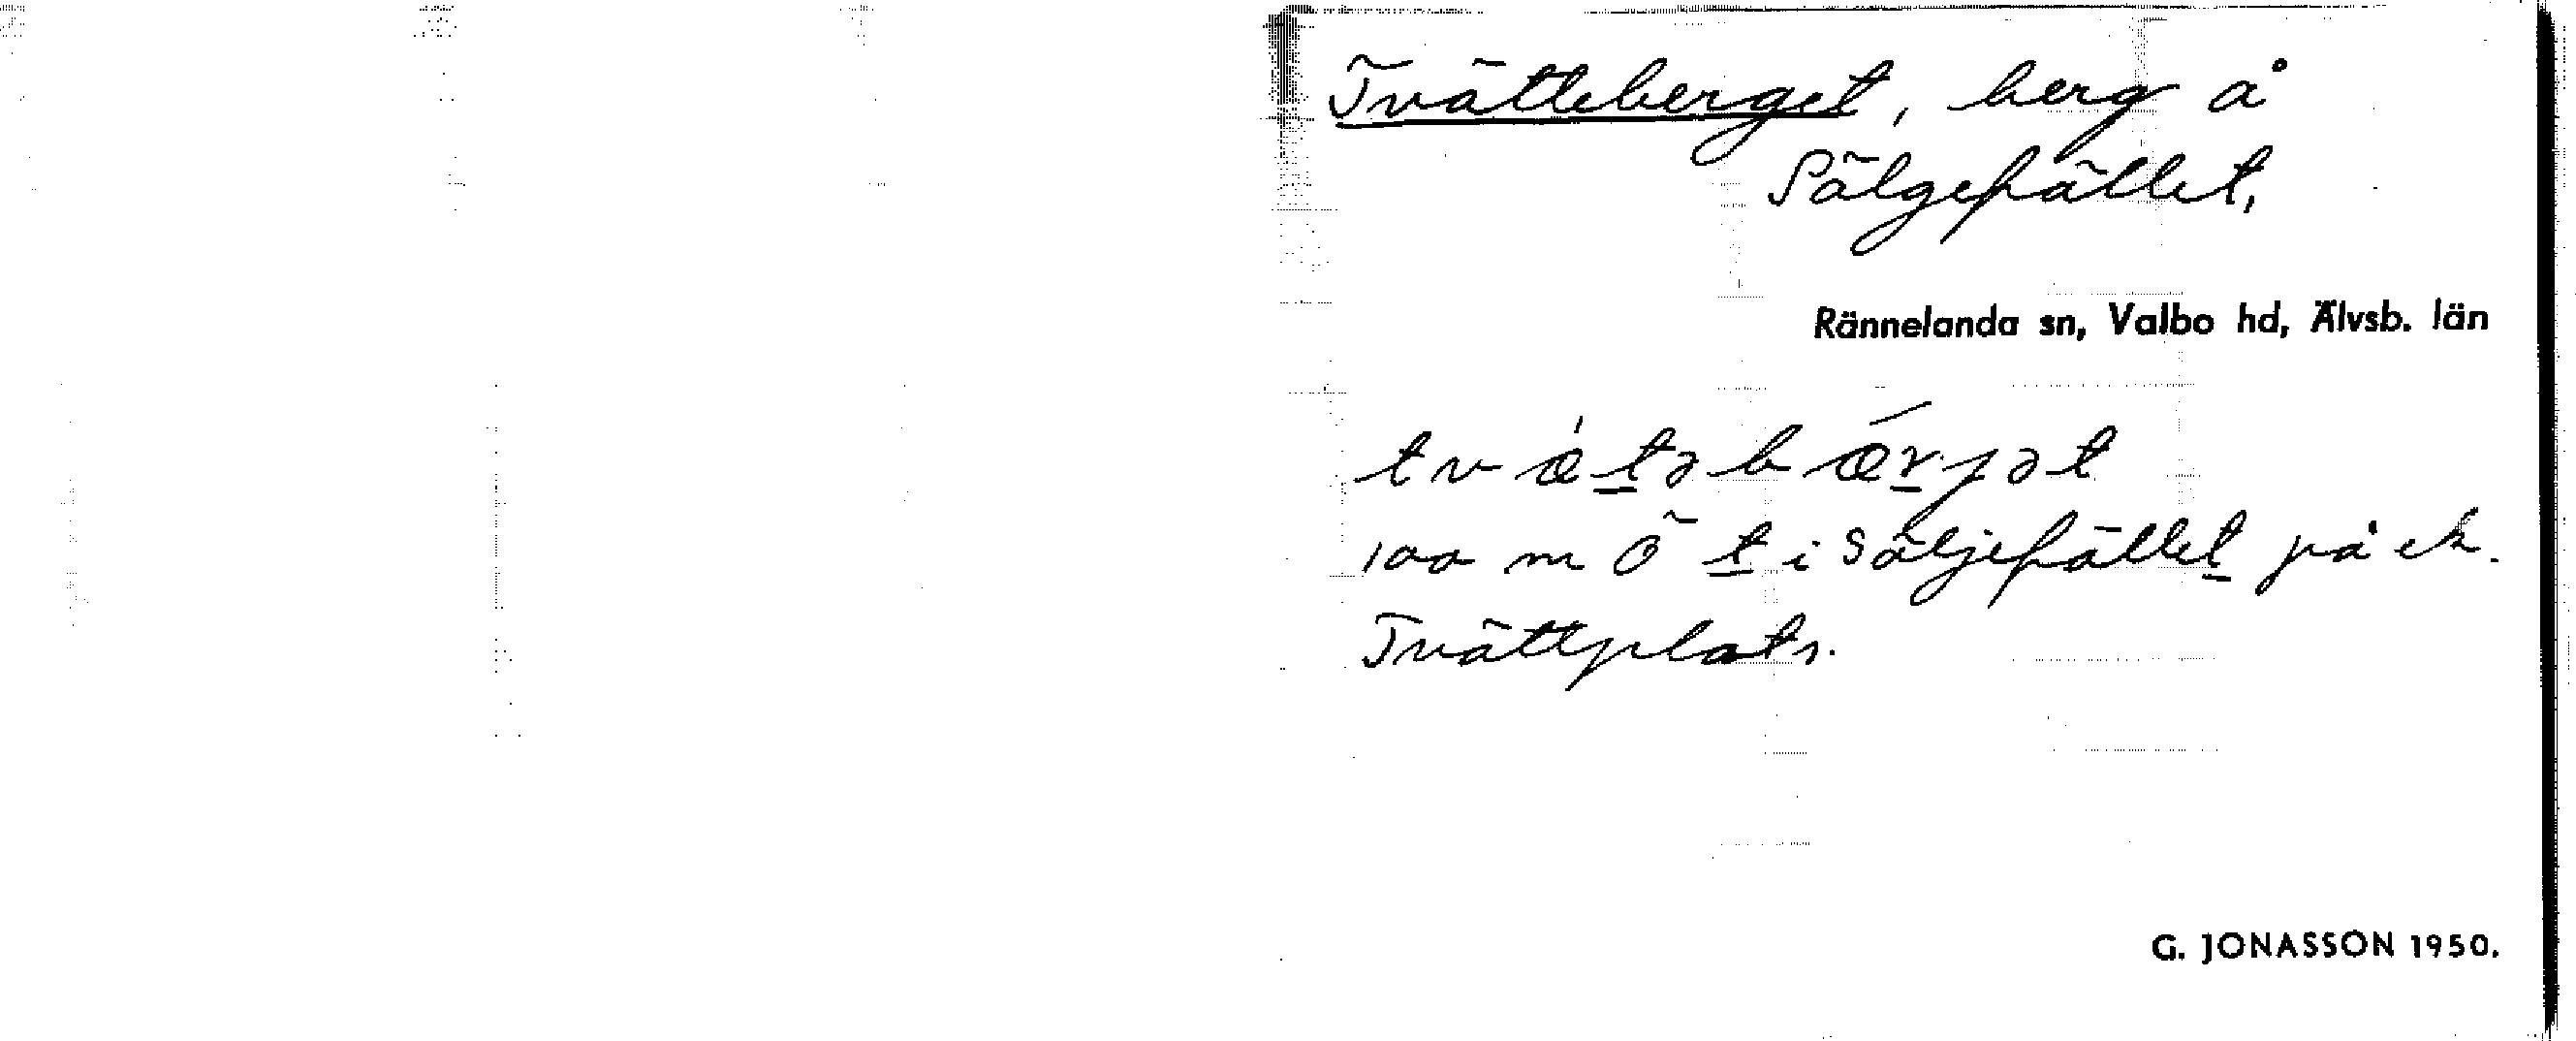 Tvätteberget, berg å
Sälgefället,
Rännelanda sn, Valbo hd, Älvsb. län
tvætəbærjət
100 m Ö t i Säljefället på ek.
Tvättplats.
G. JONASSON 1950.